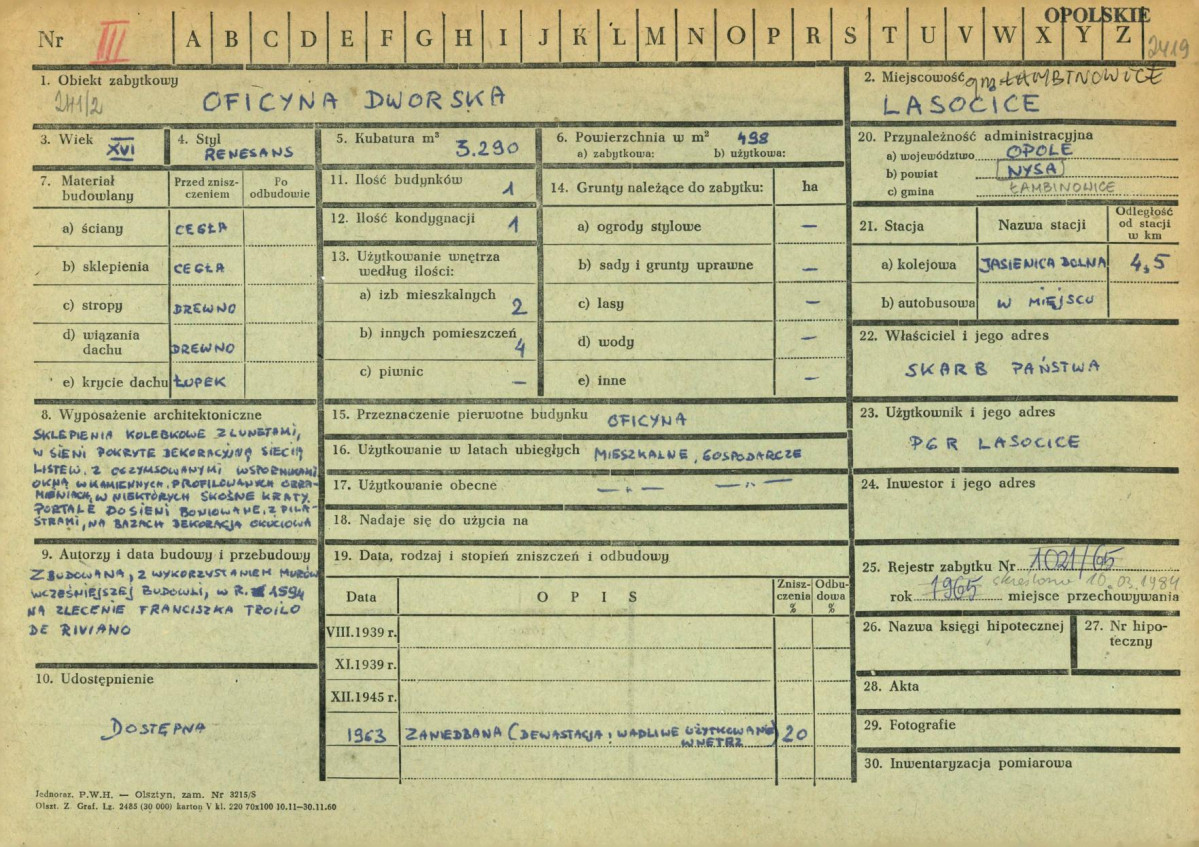 OPOLSKIE
Nr III A B C D E F G H I J K L M N O P R S T U V W X Y Z 2419
1. Obiekt zabytkowy
241/2
OFICYNA DWORSKA
2. Miejscowość gm. ŁAMBINOWICE
LASOCICE
3. Wiek XVI
4. Styl RENESANS
5. Kubatura m³ 3.290
6. Powierzchnia w m² 498
a) zabytkowa: b) użytkowa:
7. Materiał budowlany
Przed zniszczeniem
Po odbudowie
a) ściany CEGŁA
b) sklepienia CEGŁA
c) stropy DREWNO
d) wiązania dachu DREWNO
e) krycie dachu ŁUPEK
8. Wyposażenie architektoniczne
SKLEPIENIA KOLEBKOWE Z LUNETAMI,
W SIENI POKRYTE DEKORACYJNĄ SIECIĄ
LISTEW, Z OGZYMSOWANYMI WSPORNIKAMI
OKNA W KAMIENNYCH, PROFILOWANYCH OBRA-
MIENIACH, W NIEKTÓRYCH SKOŚNE KRATY.
PORTALE DO SIENI BONIOWANE, Z PILA-
STRAMI, NA BAZACH DEKORACJA OKUCIOWA
9. Autorzy i data budowy i przebudowy
ZBUDOWANA, Z WYKORZYSTANIEM MURÓW
WCZEŚNIEJSZEJ BUDOWLI, W R. 1594
NA ZLECENIE FRANCISZKA TROILO
DE RIVIANO
10. Udostępnienie
DOSTĘPNA
11. Ilość budynków 1
12. Ilość kondygnacji 1
13. Użytkowanie wnętrza
według ilości:
a) izb mieszkalnych 2
b) innych pomieszczeń 4
c) piwnic —
14. Grunty należące do zabytku: ha
a) ogrody stylowe —
b) sady i grunty uprawne —
c) lasy —
d) wody —
e) inne —
15. Przeznaczenie pierwotne budynku OFICYNA
16. Użytkowanie w latach ubiegłych MIESZKALNE, GOSPODARCZE
17. Użytkowanie obecne —"— —"—
18. Nadaje się do użycia na
19. Data, rodzaj i stopień zniszczeń i odbudowy
Data
O P I S
Zniszczenia %
Odbudowa %
VIII.1939 r.
XI.1939 r.
XII.1945 r.
1963 ZANIEDBANA (DEWASTACJA I WADLIWE UŻYTKOWANIE WNĘTRZ) 20
20. Przynależność administracyjna
a) województwo OPOLE
b) powiat NYSA
c) gmina ŁAMBINOWICE
21. Stacja
Nazwa stacji
Odległość od stacji w km
a) kolejowa JASIENICA DOLNA 4,5
b) autobusowa W MIEJSCU
22. Właściciel i jego adres
SKARB PAŃSTWA
23. Użytkownik i jego adres
PGR LASOCICE
24. Inwestor i jego adres
25. Rejestr zabytku Nr 1021/65
skreślono 10.03.1984
rok 1965 miejsce przechowywania
26. Nazwa księgi hipotecznej
27. Nr hipoteczny
28. Akta
29. Fotografie
30. Inwentaryzacja pomiarowa
Jednoraz. P.W.H. — Olsztyn, zam. Nr 3215/S
Olszt. Z. Graf. Lz. 2485 (30 000) karton V kl. 220 70x100 10.11—30.11.60